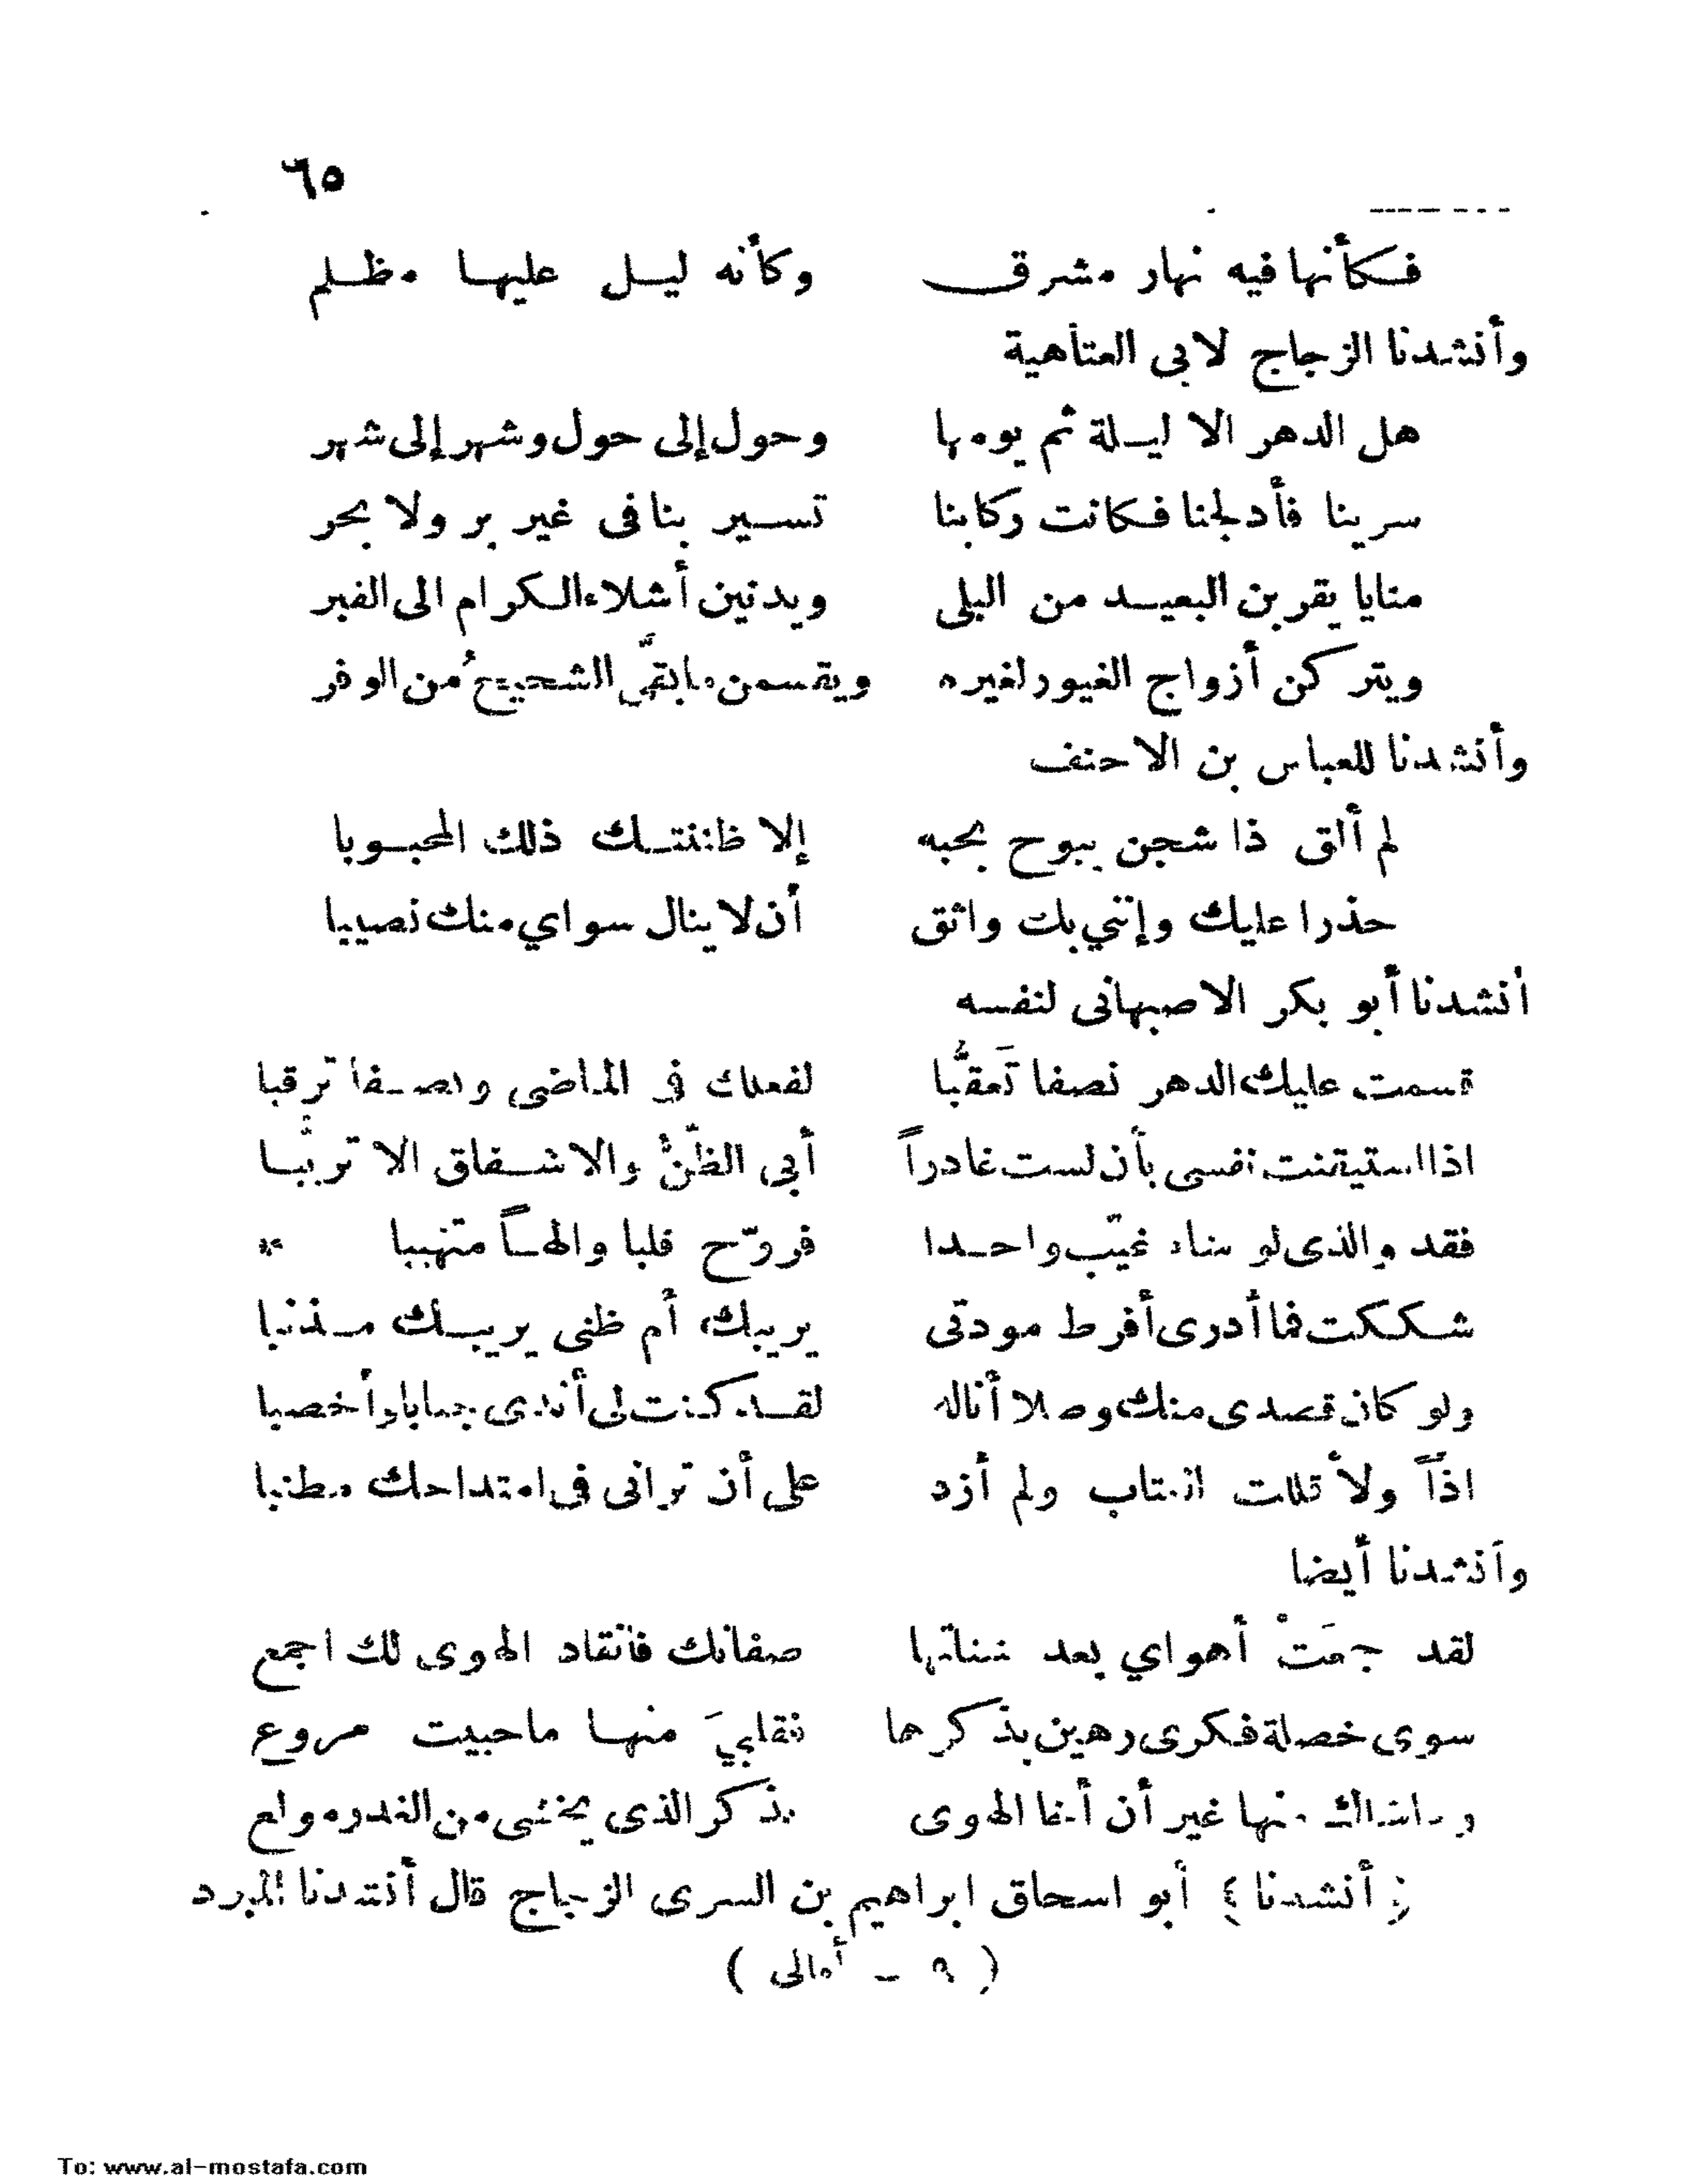 ٦٥
فكأنها فيه نهار مشرق وكأنه ليل عليها مظلم
وأنشدنا الزجاج لابى العتاهية
هل الدهر الا ليلة ثم يومها وحول إلى حول وشهر إلى شهر
سرينا فأدلجنا فكانت ركابنا تسير بنا فى غير بر ولا بحر
منايا يقربن البعيد من البلى ويدنين أشلاء الكرام الى القبر
ويتركن أزواج الغيور لغيره ويقسمن ما يبقّى الشحيحُ من الوفر
وأنشدنا للعباس بن الاحنف
لم ألق ذا شجن يبوح بحبه إلا ظننتك ذلك المحبوبا
حذرا عليك وإننى بك واثق أن لا ينال سواي منك نصيبا
أنشدنا أبو بكر الاصبهانى لنفسه
قسمت عليك الدهر نصفا تَعقبُّا لفعلك فى الماضى ونصفا ترقبا
اذا استيقنت نفسى بأن لست غادراً أبى الظّنُّ والاشفاق الا تريُّبا
فقد والذى لو شاء غيّب واحدا فروّح قلبا والهاً متهيبا *
شككت فما أدرى أفرط مودتى يريبك أم ظنى يريبك مذنبا
ولو كان قصدى منك وصلا أناله لقد كنت لى أندى جنابا وأخصبا
اذاً ولأقللت العتاب ولم أزد على أن ترانى فى امتداحك مطنبا
وأنشدنا أيضا
لقد جمعَتْ أهواي بعد شتاتها صفاتك فانقاد الهوى لك اجمع
سوى خصلة فكرى رهين بذكرها فقلبيَ منها ما حييت مروع
وحاشاك منها غير أن أخا الهوى بذكر الذى يخشى من الغدر مولع
﴿ أنشدنا ﴾ أبو اسحاق ابراهيم بن السرى الزجاج قال أنشدنا المبرد
( ٩ – أمالى )
To: www.al-mostafa.com